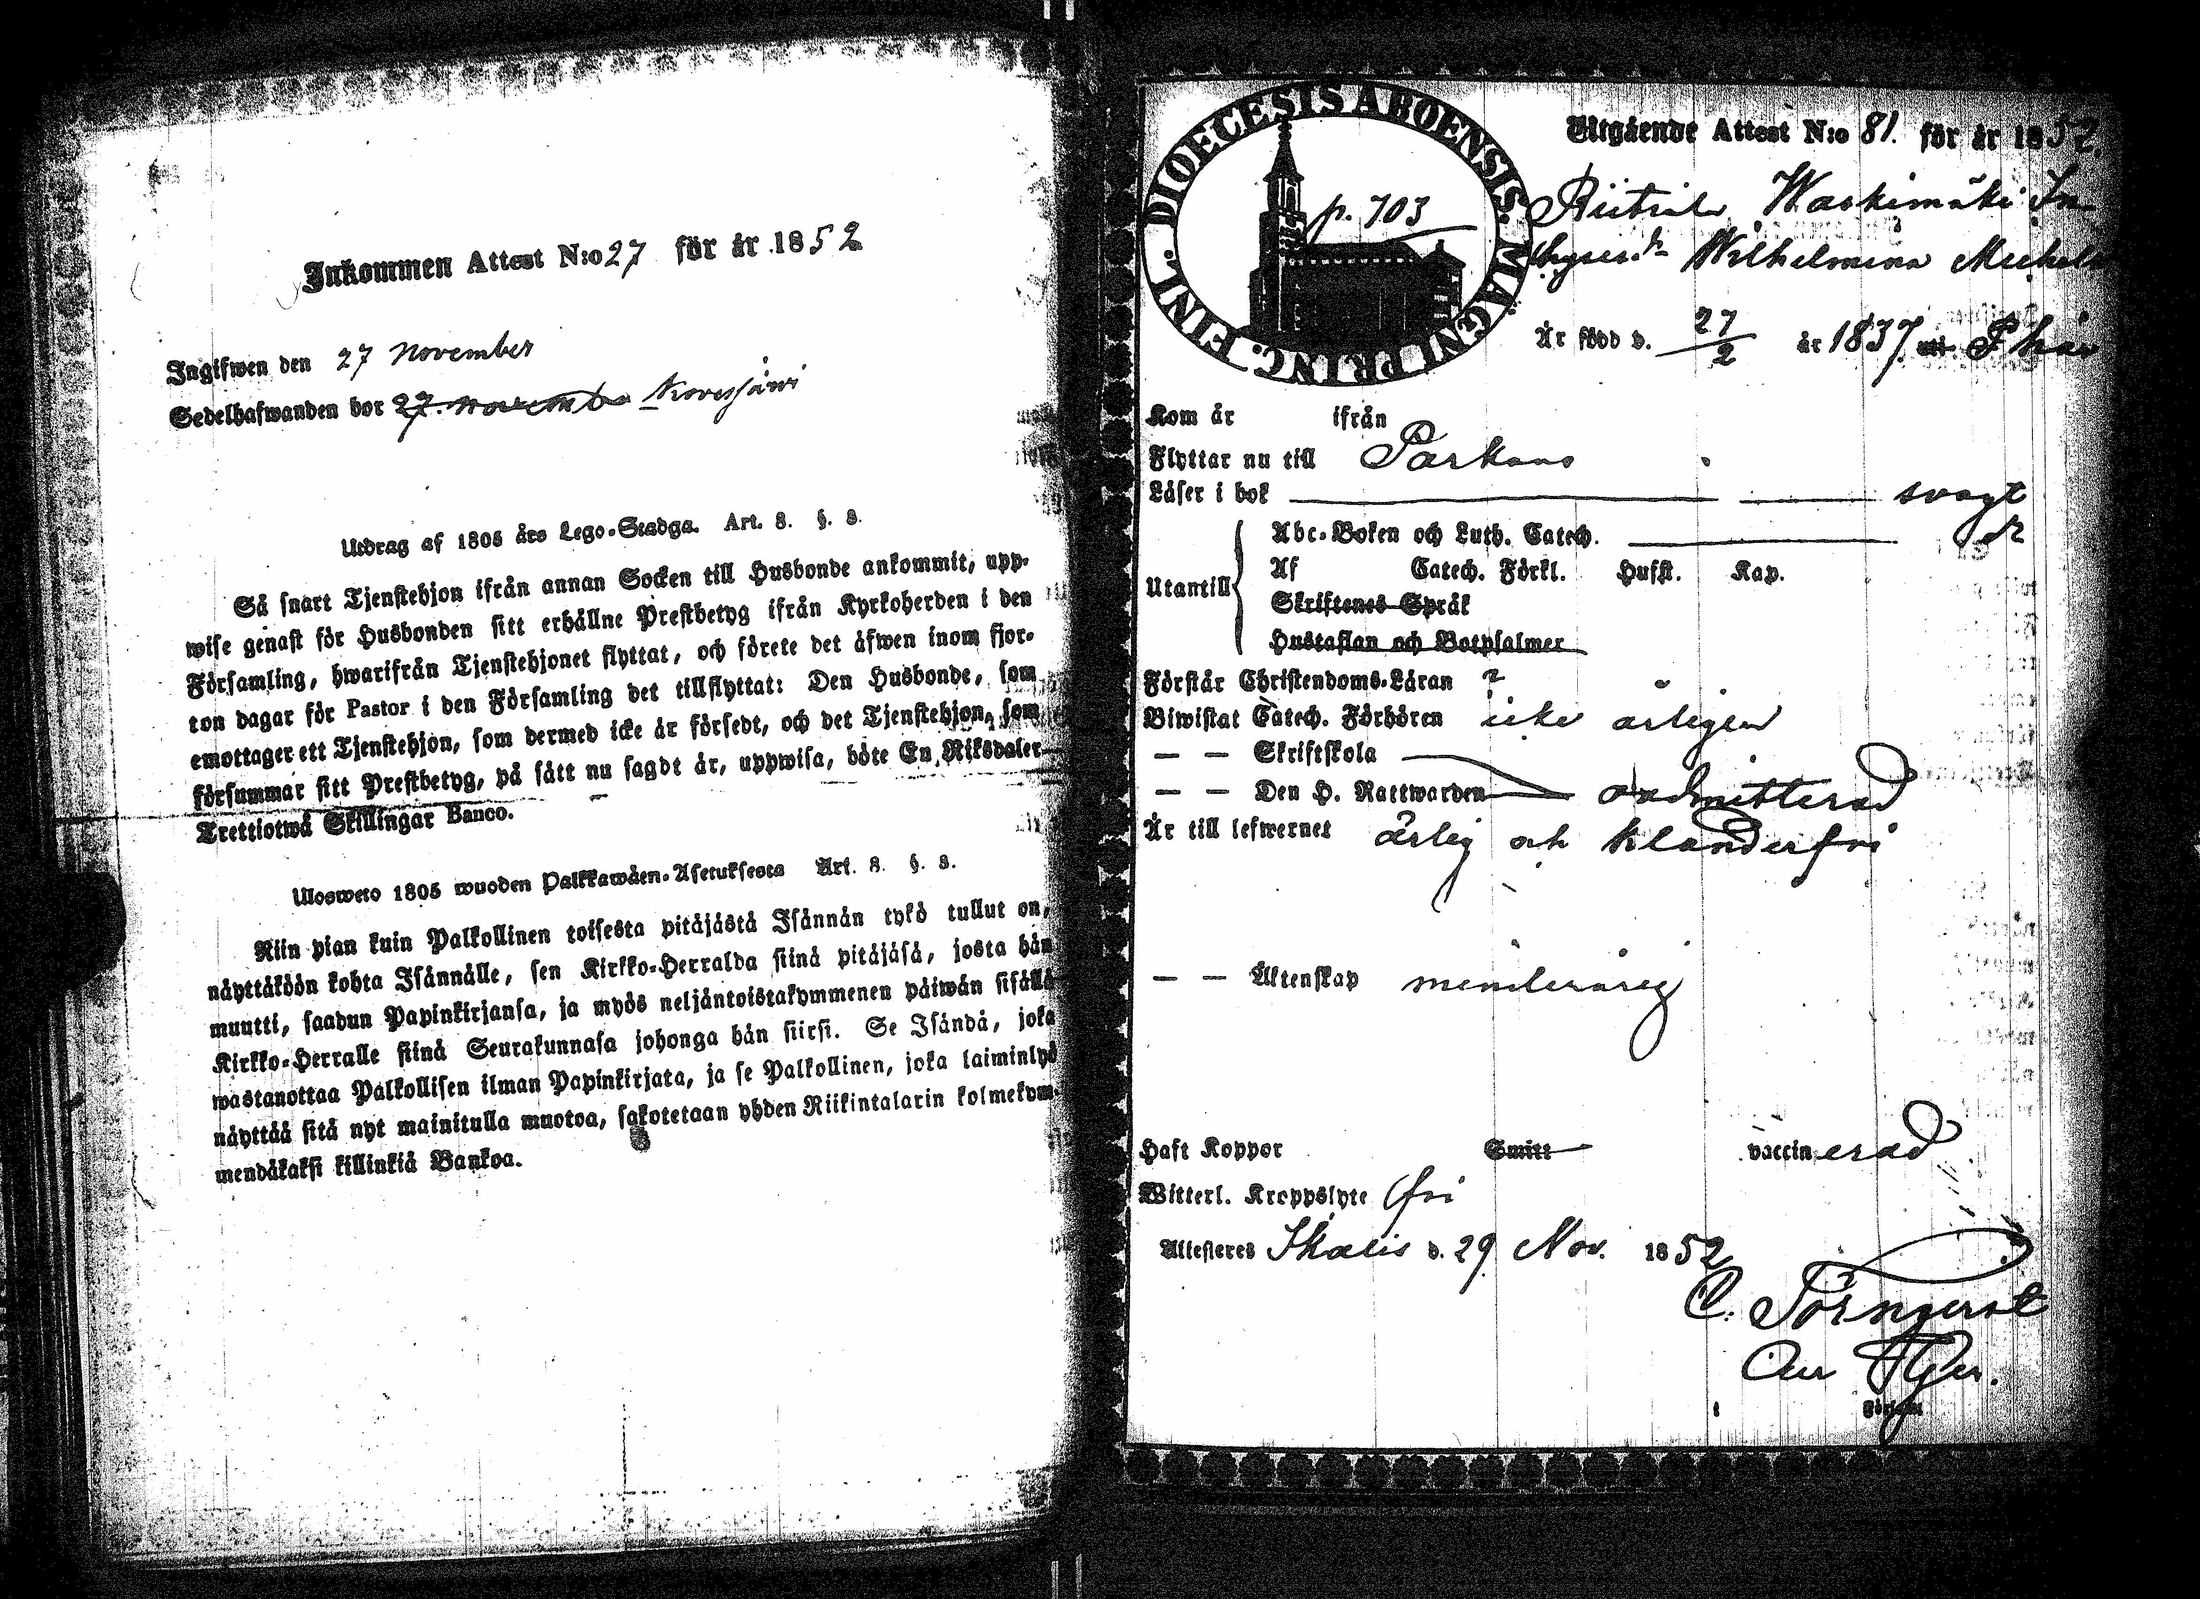 Inkommen Attest N:o 27 för år 1852
Ingifwen den 27 November
Sedelhafwanden bor 27. Novemb Kovesjärvi
Utdrag af 1805 års Lego-Stadga. Art. 8. §. 8.
Så snart Tjenstehjon ifrån annan Socken till Husbonde ankommit, upp-
wise genast för Husbonden sitt erhållne Prestbetyg ifrån Kyrkoherden i den
Församling, hwarifrån Tjenstehjonet flyttat, och förete det äfwen inom fjor-
ton dagar för Pastor i den Församling det tillflyttat: Den Husbonde, som
emottager ett Tjenstehjon, som dermed icke är försedt, och det Tjenstehjon, som
försummar sitt Prestbetyg, på sätt nu sagdt är, uppwisa, böte En Riksdaler
Trettiotwå Skillingar Banco.
Ulosweto 1805 wuoden Palkkawäen-Asetuksesta Art. 8. §. 8.
Niin pian kuin Palkollinen toisesta pitäjästä Isännän tykö tullut on,
näyttäköön kohta Isännälle, sen Kirkko-Herralda siinä pitäjäsä, josta hän
muutti, saadun Papinkirjansa, ja myös neljäntoistakymmenen päiwän sisällä
Kirkko-Herralle siinä Seurakunnasa johonga hän siirsi. Se Isändä, joka
wastanottaa Palkollisen ilman Papinkirjata, ja se Palkollinen, joka laiminlyö
näyttää sitä nyt mainitulla muotoa, sakotetaan yhden Riikintalarin kolmekym-
mendäkaksi killinkiä Bankoa.
DIOECESIS ABOENSIS. MAGNI PRINC. FINL.
p. 703
Utgående Attest N:o 81. för år 1852.
Wilhelmina
Är född d. 27/2 år 1837. uti
Kom år ifrån
Flyttar nu till Parkano
Läser i bok svagt
Abc-Boken och Luth. Catech.
Utantill Af Catech. Förkl. Husst. Kap.
Skriftenes Språk
Hustaflan och Botpsalmer
Förstår Christendoms-Läran ?
Biwistat Catech. Förhören icke årligen
— — Skriftskola
— — Den H. Nattwarden oadmitterad
Är till lefwernet ärlig och klanderfri
— — Äktenskap minderårig
Haft Koppor Smitt vaccinerad
Witterl. Kroppslyte fri
Attesteras Ikalis d. 29 Nov. 1852
C. Törnqvist